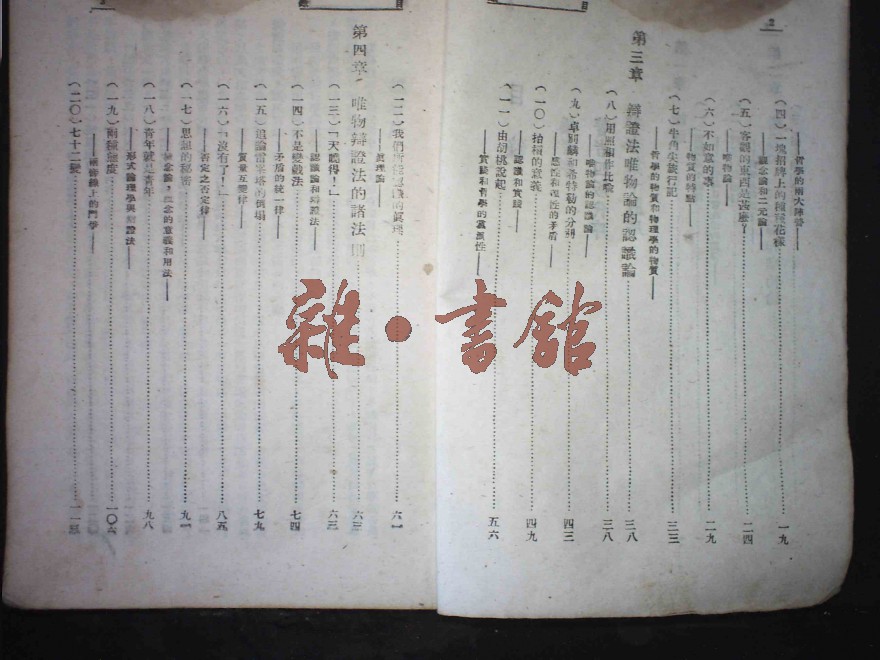 ——哲學的兩大陣營——
(四)一塊招牌上的種種花樣……一九
——觀念論和二元論——
(五)客觀的東西是甚麼?……二四
——唯物論——
(六)不如意的事……二九
——物質的特點——
(七)牛角尖旅行記……三三
——哲學的物質和物理學的物質——
第三章 辯證法唯物論的認識論……三八
(八)用照相作比喻……三八
——唯物論的認識論——
(九)卓別麟和希特勒的分別……四三
——感性和理性的矛盾——
(一〇)抬槓的意義……四九
——認識和實踐——
(一一)由胡桃說起……五六
——實踐和哲學的黨派性——
(一二)我們所能認識的真理……六一
——真理論——
第四章 唯物辯證法的諸法則……六三
(一三)「天曉得!」……六三
——認識論和辯證法——
(一四)不是變戲法……七四
——矛盾的統一律——
(一五)追論雷峯塔的倒塌……七九
——質量互變律——
(一六)「沒有了!」……八五
——否定之否定律——
(一七)思想的秘密……九一
——概念論,概念的意義和用法——
(一八)青年就是青年……九八
——形式論理學與辯證法——
(一九)兩種態度……一〇六
(二〇)七十二變……一一三
雜·書館